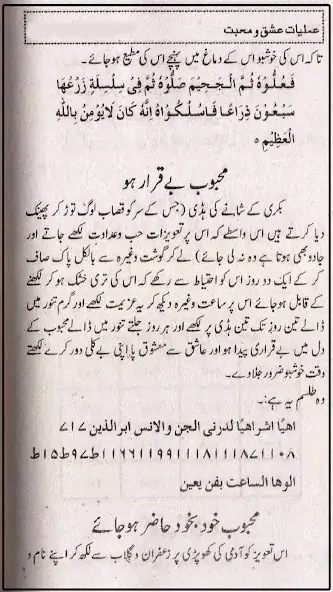 عملیات عشق و محبت
تاکہ اس کی خوشبو اس کے دماغ میں پہنچے اس کی مطیع ہو جائے۔
فَغُلُّوْهُ ثُمَّ الْجَحِيْمَ صَلُّوْهُ ثُمَّ فِىْ سِلْسِلَةٍ ذَرْعُهَا
سَبْعُوْنَ ذِرَاعًا فَاسْلُكُوْاهُ اِنَّهٗ كَانَ لَا يُوْمِنُ بِاللّٰهِ
الْعَظِيْمِ ٥
محبوب بے قرار ہو
بکری کے شانے کی ہڈی (جس کے سر کو قصاب لوگ توڑ کر پھینک
دیا کرتے ہیں اس واسطے کہ اس پر تعویزات حب وعداوت لکھے جاتے اور
جادو بھی ہوتا ہے وہ نہ لی جائے) لے کر گوشت وغیرہ سے بالکل پاک صاف
کر کے ایک دو روز اس کو احتیاط سے رکھے کہ اس کی تری خشک ہو کر لکھنے
کے قابل ہو جائے اس پر ساعت وغیرہ دیکھ کر یہ عزیمت لکھے اور گرم تنور میں
ڈالے تین روز تک تین ہڈی پر لکھے اور ہر روز جلتے تنور میں ڈالے محبوب کے
دل میں بے قراری پیدا ہو اور عاشق سے معشوق پا اپنی بے کلی دور کرے لکھتے
وقت خوشبو ضرور جلاوے۔
وہ طلسم یہ ہے:۔
اھیًا اشراھیًا لدرنی الجن والانس ابرالذین ۷۱۷
۱۰۸ ۱۱۸۷۱ ۱۱۱۸ ۱۱۸ ۱۹۹ ۱۱۶۶۱ط۹۷ط۱۵ط
الوھا الساعت بفن یعین
محبوب خود بخود حاضر ہو جائے
اس تعویز کو آدمی کی کھوپڑی پر زعفران و گلاب سے لکھ کر اپنے نام و